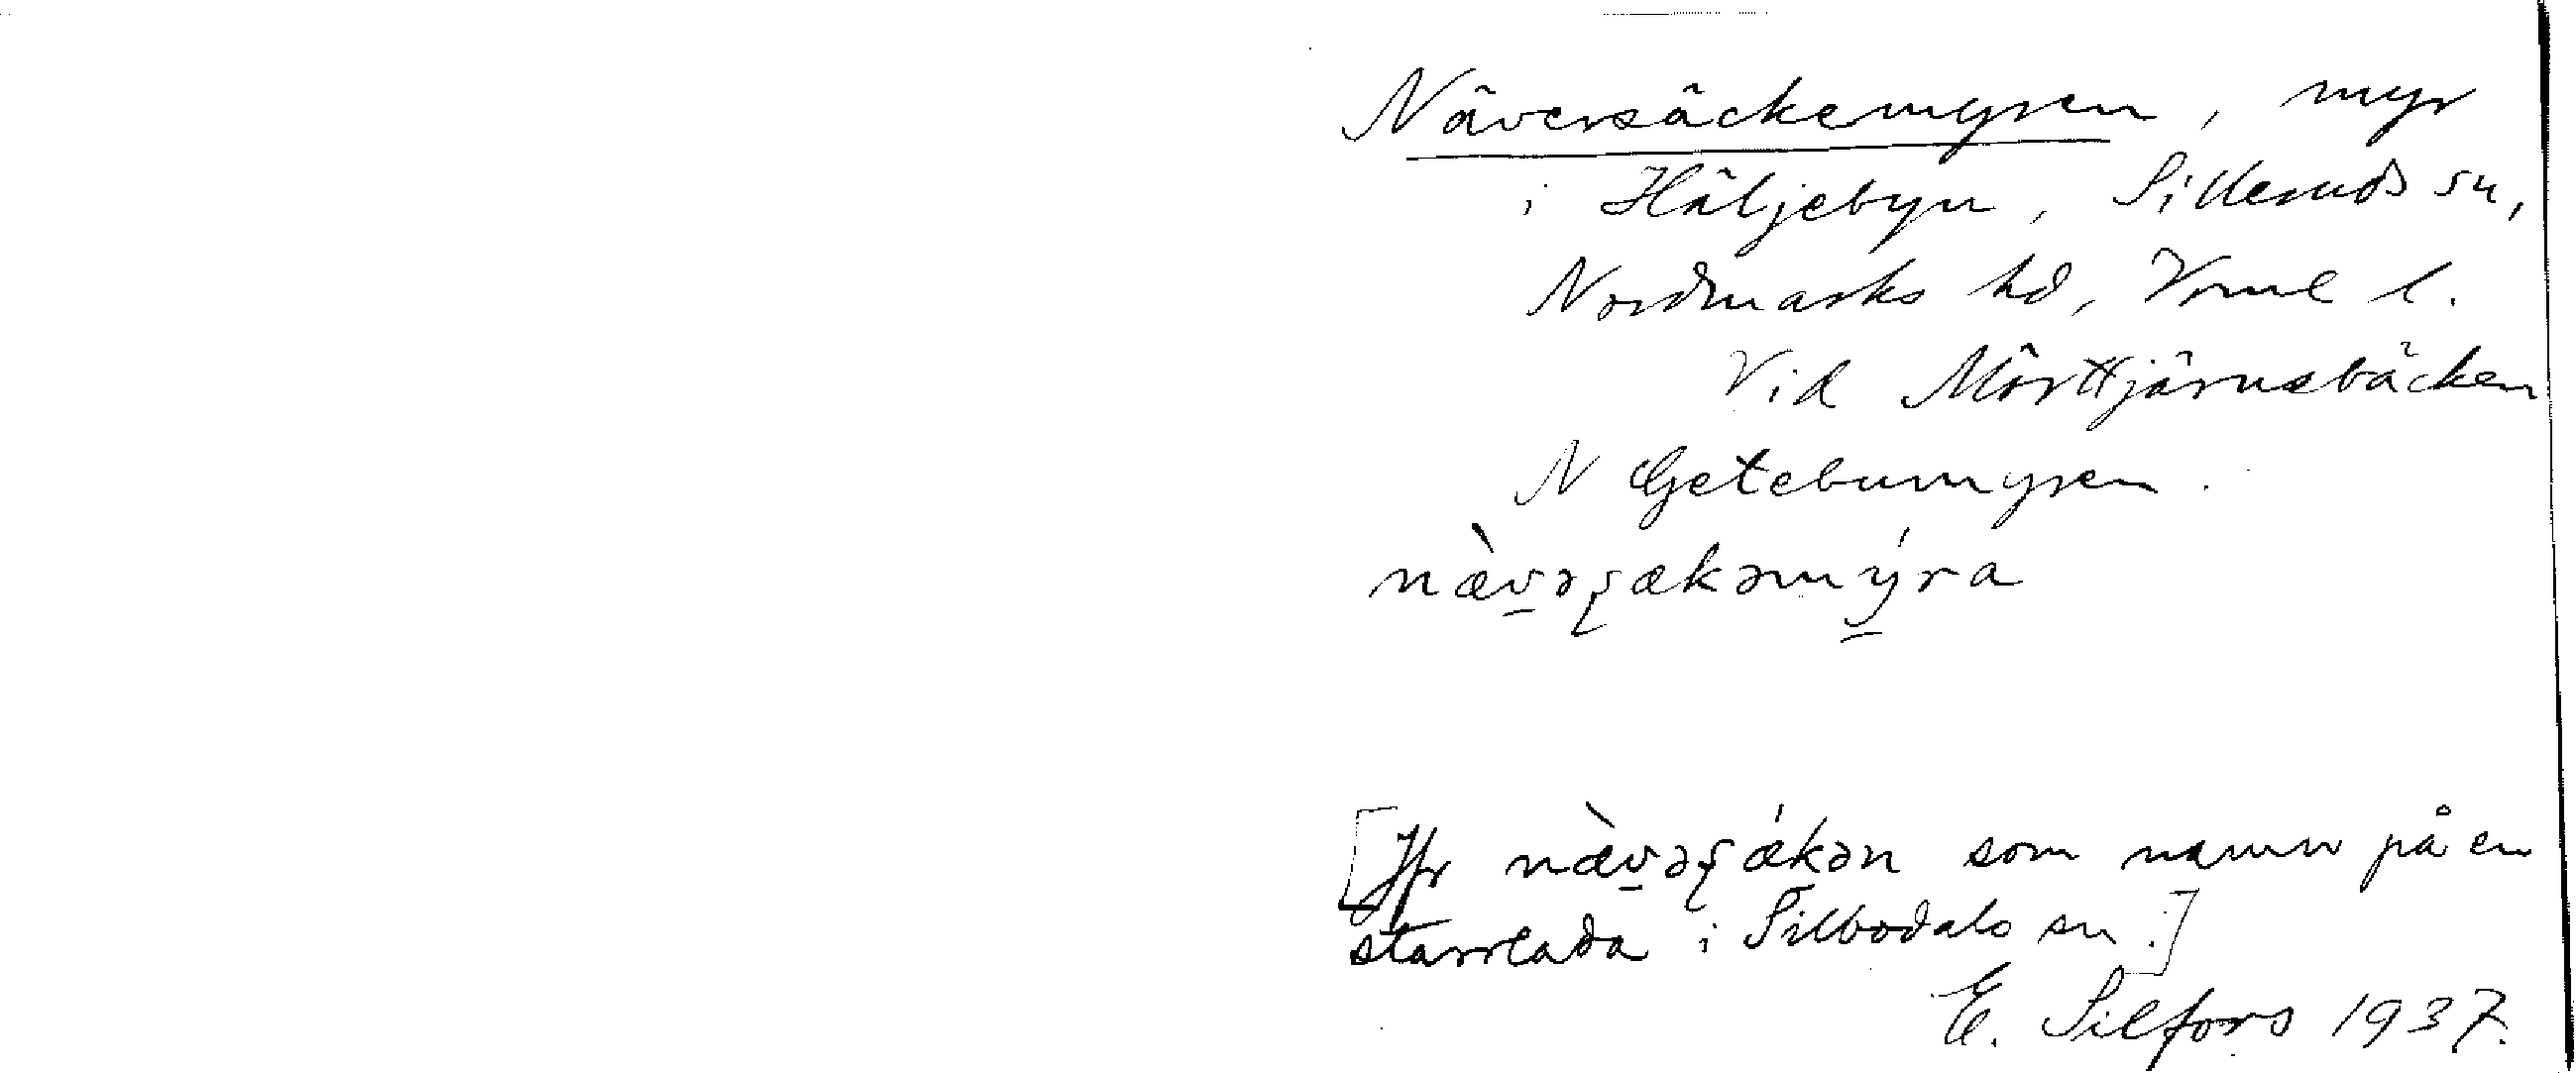 Näversäckemyren, myr
i Häljebyn, Silleruds sn,
Nordmarks hd, Vrml l.
Vid Mörttjärnsbäcken
N Getebumyren.
næ̀v̠əʂækəmý̠ra
[Jfr næ̀v̠əʂǽkən som namn på en
starrlada i Silbodals sn.]
E. Silfors 1937.